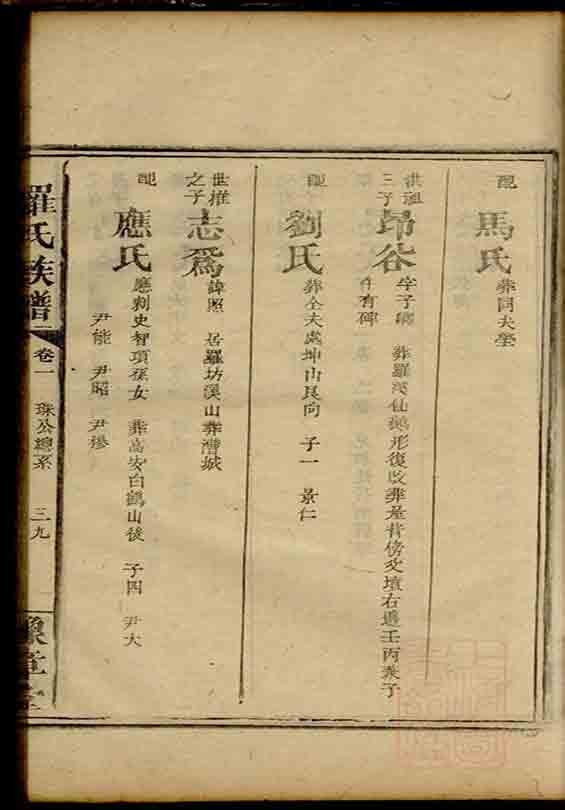 配 馬氏 葬同夫塋
洪祖三子 昂谷 字子 葬羅溪仙 形復改葬 背傍父墳右邊壬丙兼子午有碑
配 劉氏 葬仝夫處坤山艮向 子一 景仁
世推之子 志爲 諱照 居羅坊溪山葬潛城
配 應氏 應刺史智頊孫女 葬高安白鶴山後 子四 尹大
尹能 尹昭 尹
羅氏族譜 卷一 珠公總系 三九 豫章堂